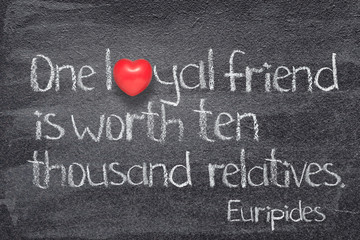 One loyal friend
is worth ten
thousand relatives.
Euripides